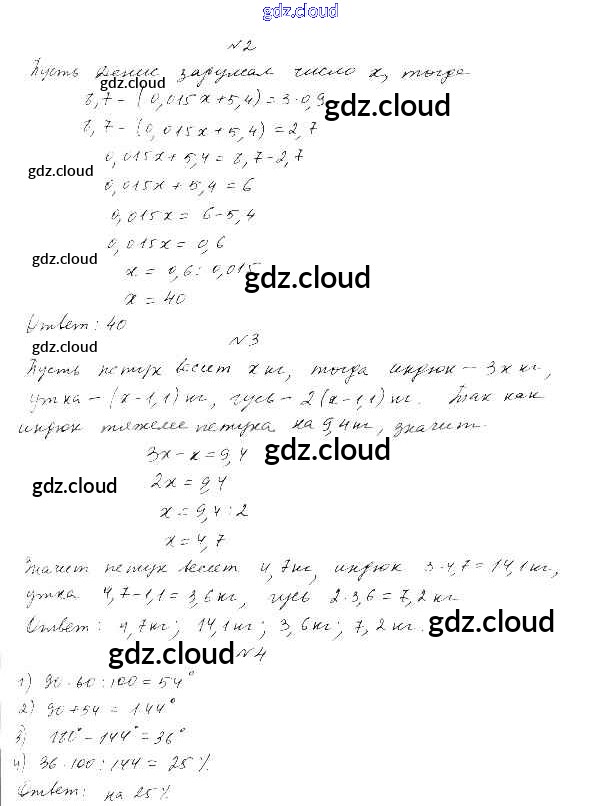 gdz.cloud
№2
Пусть Денис загадал число x, тогда
gdz.cloud
8,7 - (0,015x + 5,4) = 3·0,9
gdz.cloud
8,7 - (0,015x + 5,4) = 2,7
0,015x + 5,4 = 8,7 - 2,7
gdz.cloud
0,015x + 5,4 = 6
0,015x = 6 - 5,4
0,015x = 0,6
gdz.cloud
x = 0,6 : 0,015
gdz.cloud
x = 40
Ответ: 40
№3
gdz.cloud
Пусть петух весит x кг, тогда индюк - 3x кг,
утка - (x - 1,1) кг, гусь - 2(x - 1,1) кг. Так как
индюк тяжелее петуха на 9,4 кг, значит.
3x - x = 9,4
gdz.cloud
2x = 9,4
gdz.cloud
x = 9,4 : 2
x = 4,7
Значит петух весит 4,7 кг, индюк 3·4,7 = 14,1 кг,
утка 4,7 - 1,1 = 3,6 кг, гусь 2·3,6 = 7,2 кг
Ответ: 4,7 кг; 14,1 кг; 3,6 кг; 7,2 кг.
gdz.cloud
gdz.cloud
№4
1) 90·60:100 = 54°
2) 90 + 54 = 144°
3) 180° - 144° = 36°
4) 36·100:144 = 25%
Ответ: на 25%